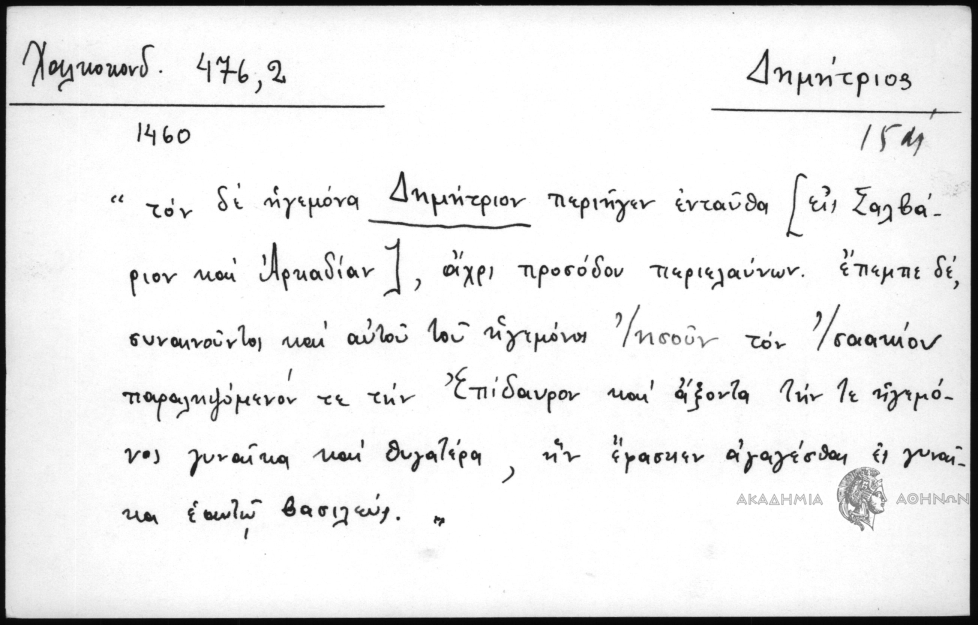 Χαλκοκονδ. 476,2
Δημήτριος
1460
“ τόν δέ ἡγεμόνα Δημήτριον περιῆγεν ἐνταῦθα [εἰς Σαλβά-
ριον καί Ἀρκαδίαν], ἄχρι προσόδου περιελαύνων. ἔπεμπε δέ,
συναινοῦντος καί αὐτοῦ τοῦ ἡγεμόνος Ἰησοῦν τόν Ἰσαακίου
παραληψόμενόν τε τήν Ἐπίδαυρον καί ἄξοντα τήν τε ἡγεμό-
νος γυναῖκα καί θυγατέρα, ἥν ἔφασκεν ἀγαγέσθαι ἐς γυναῖ-
κα ἑαυτῷ βασιλεύς. „
ΑΚΑΔΗΜΙΑ ΑΘΗΝΩΝ